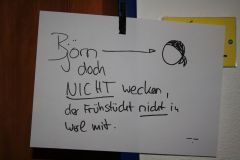 Björn
doch
NICHT wecken,
der Frühstückt nicht
mit.